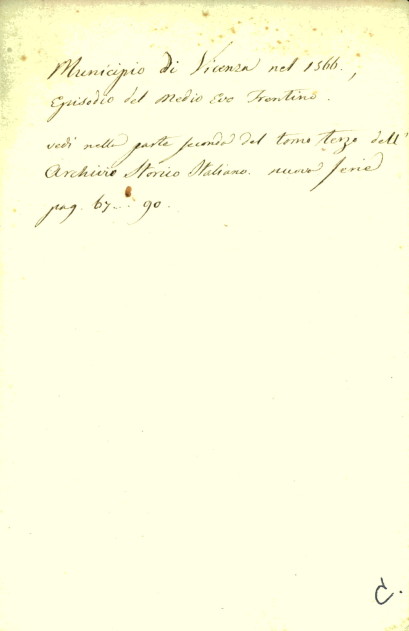 Municipio di Vicenza nel 1566.,
Episodio del Medio Evo Trentino.
vedi nella parte seconda del tomo terzo dell'
Archivio Storico Italiano. nuova serie
pag. 67 - 90.
C.